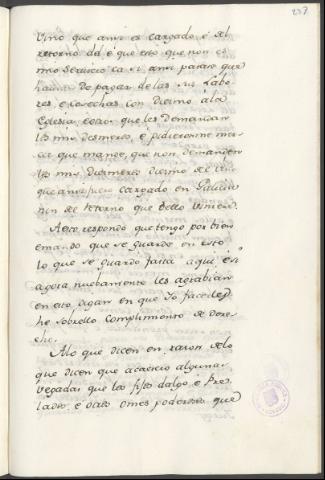 237
vino que ansi es cargado, é del
retorno dél é que esto que non es
mio servicio ca si ansi pasase que
haurian de pagar de las sus labo-
res, é cosechas con diezmo á la
Eglesia, é otro que les demandan
los mis desmeros, é pidieronme mer-
ced que mande que non demanden
los mis dezmeros diezmo del vino
que ansi fuere cargado en Galicia
nin del retorno que dello viniere.
A esto respondo que tengo por bien
é mando que se guarde en esto
lo que se guardó fasta aquí é si
agora nuebamente les agrabian
en esto digan en que Yo facerles
he sobrello complimento de dere-
cho.
A lo que dicen en razon de lo
que dicen que acaeció algunas
vegadas que los fijos dalgo, é Per-
lados, é otros omes poderosos que